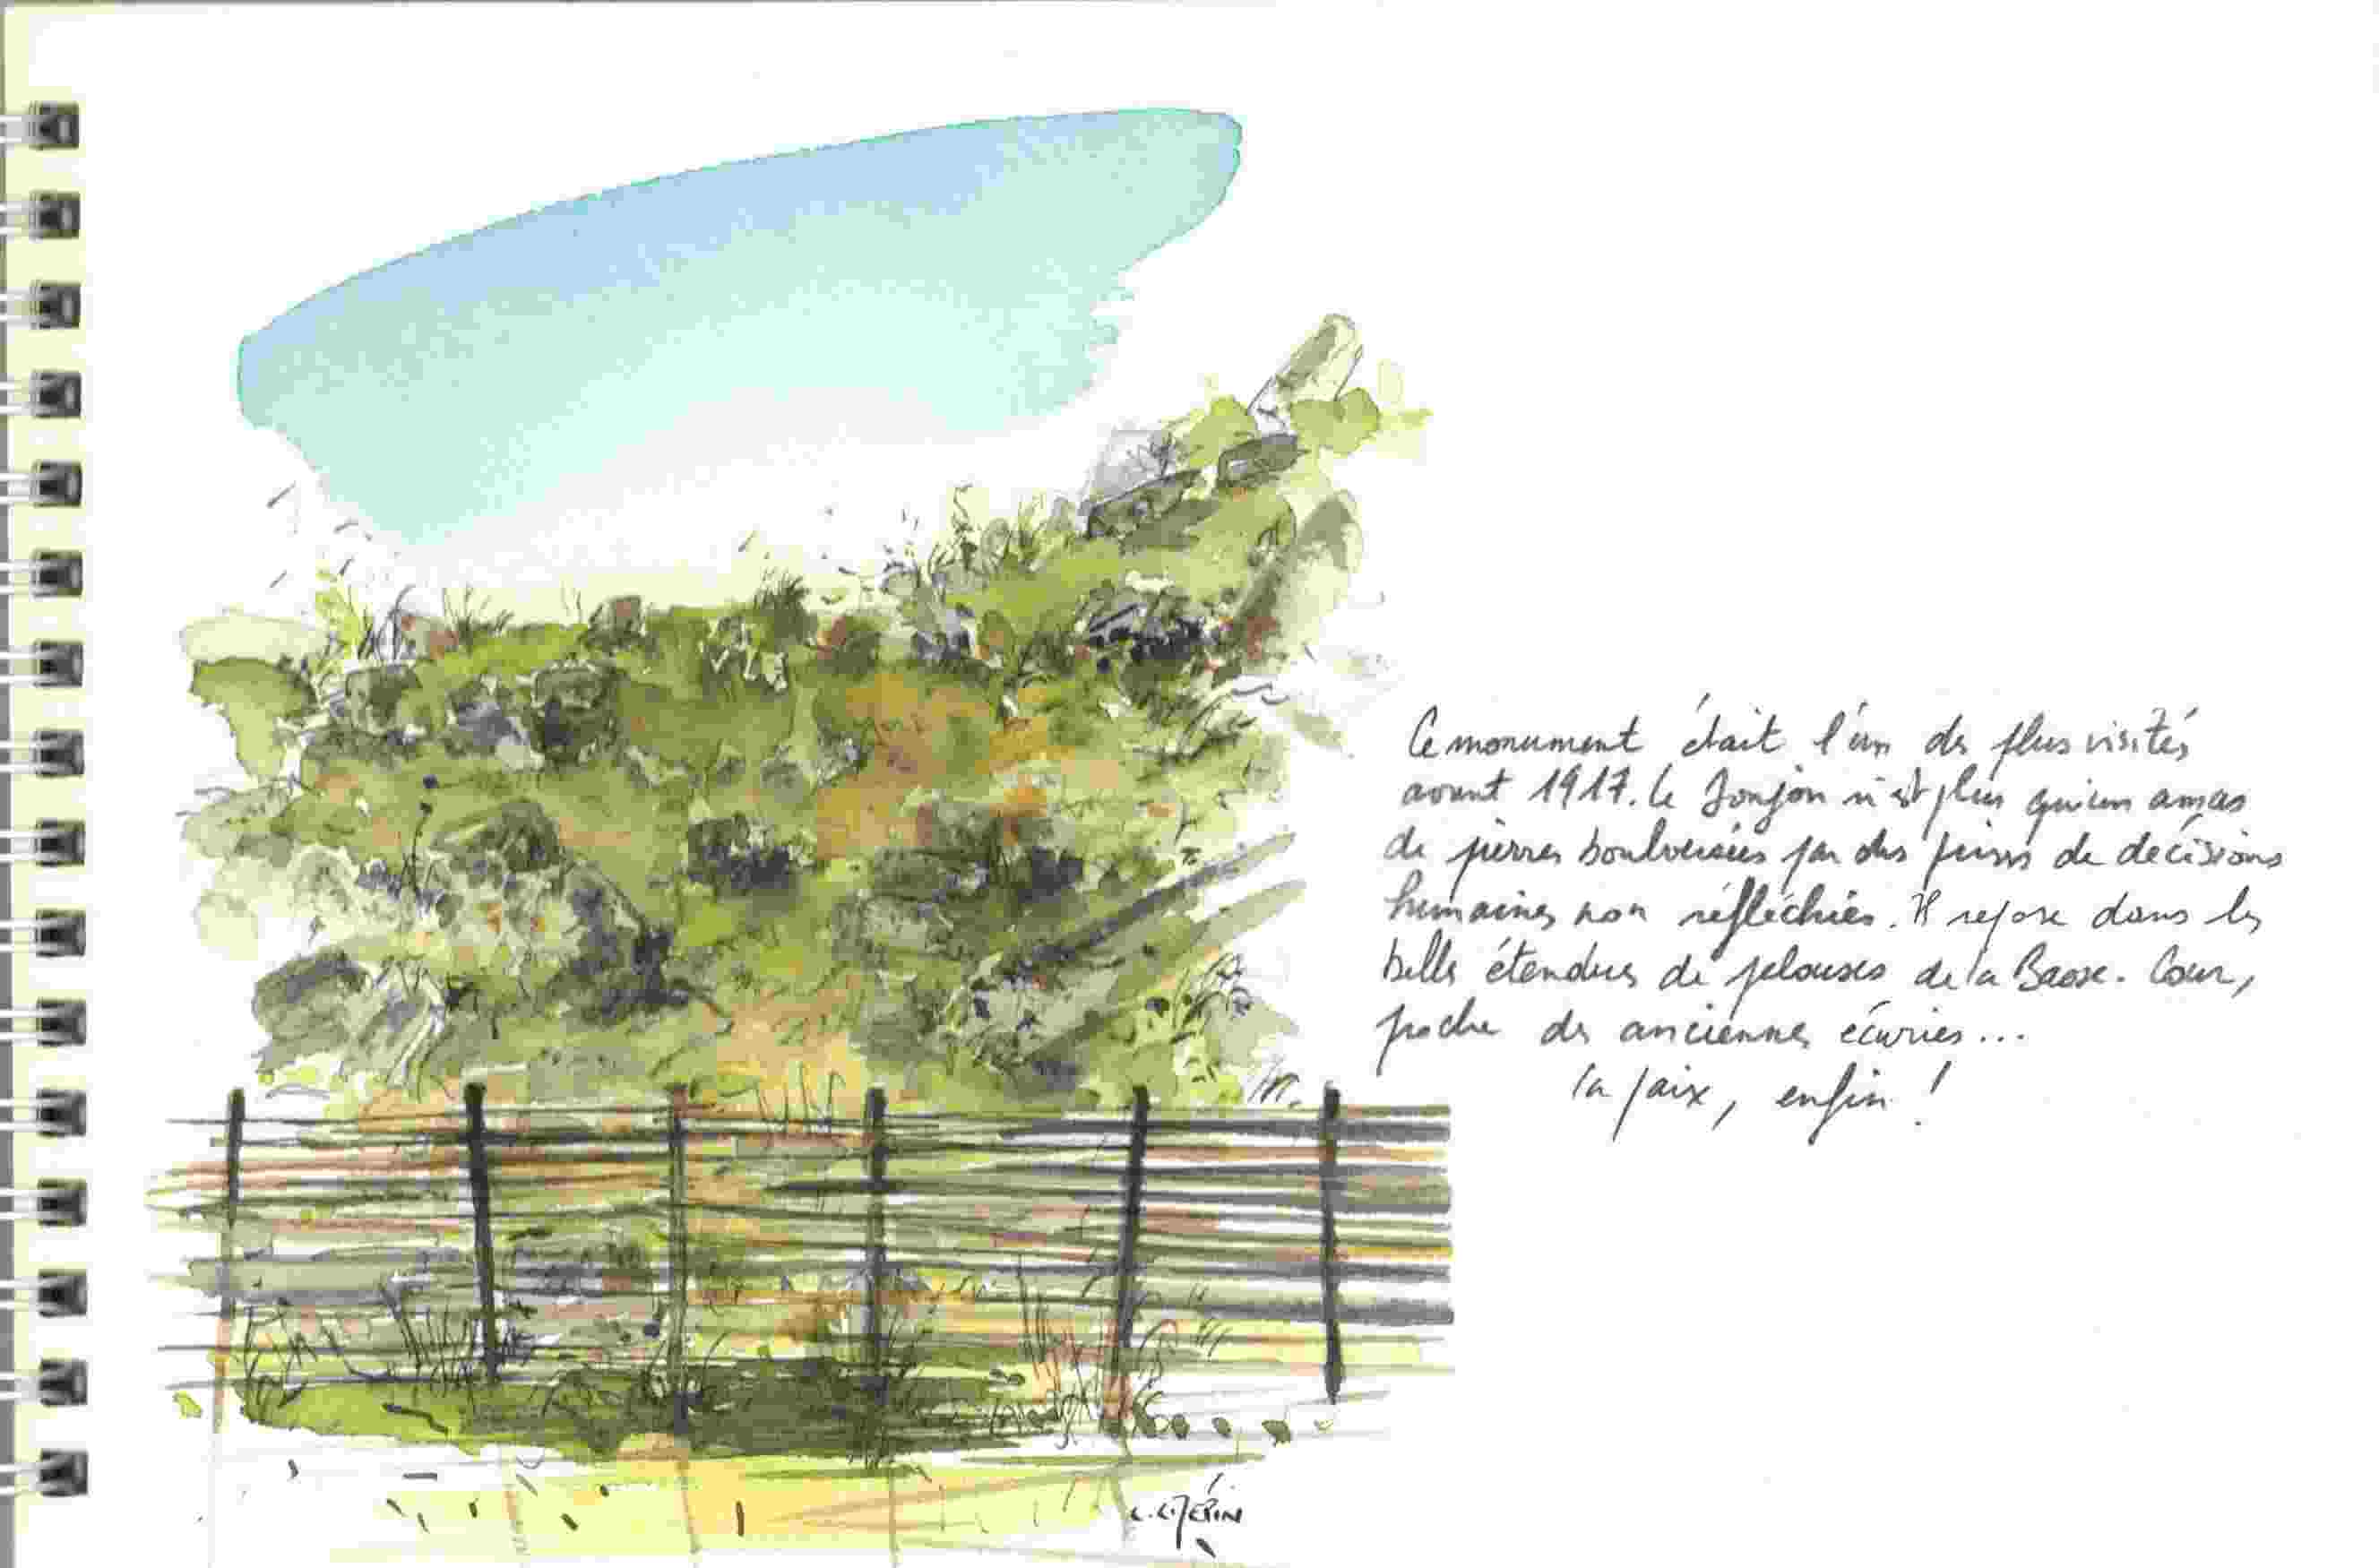 Ce monument était l'un des plus visités
avant 1917. Le Donjon n'est plus qu'un amas
de pierres boulversées par des prises de décisions
humaines non réfléchies. Il repose dans les
belles étendues de pelouses de la Basse. Cour,
proche des anciennes écuries...
la paix, enfin !